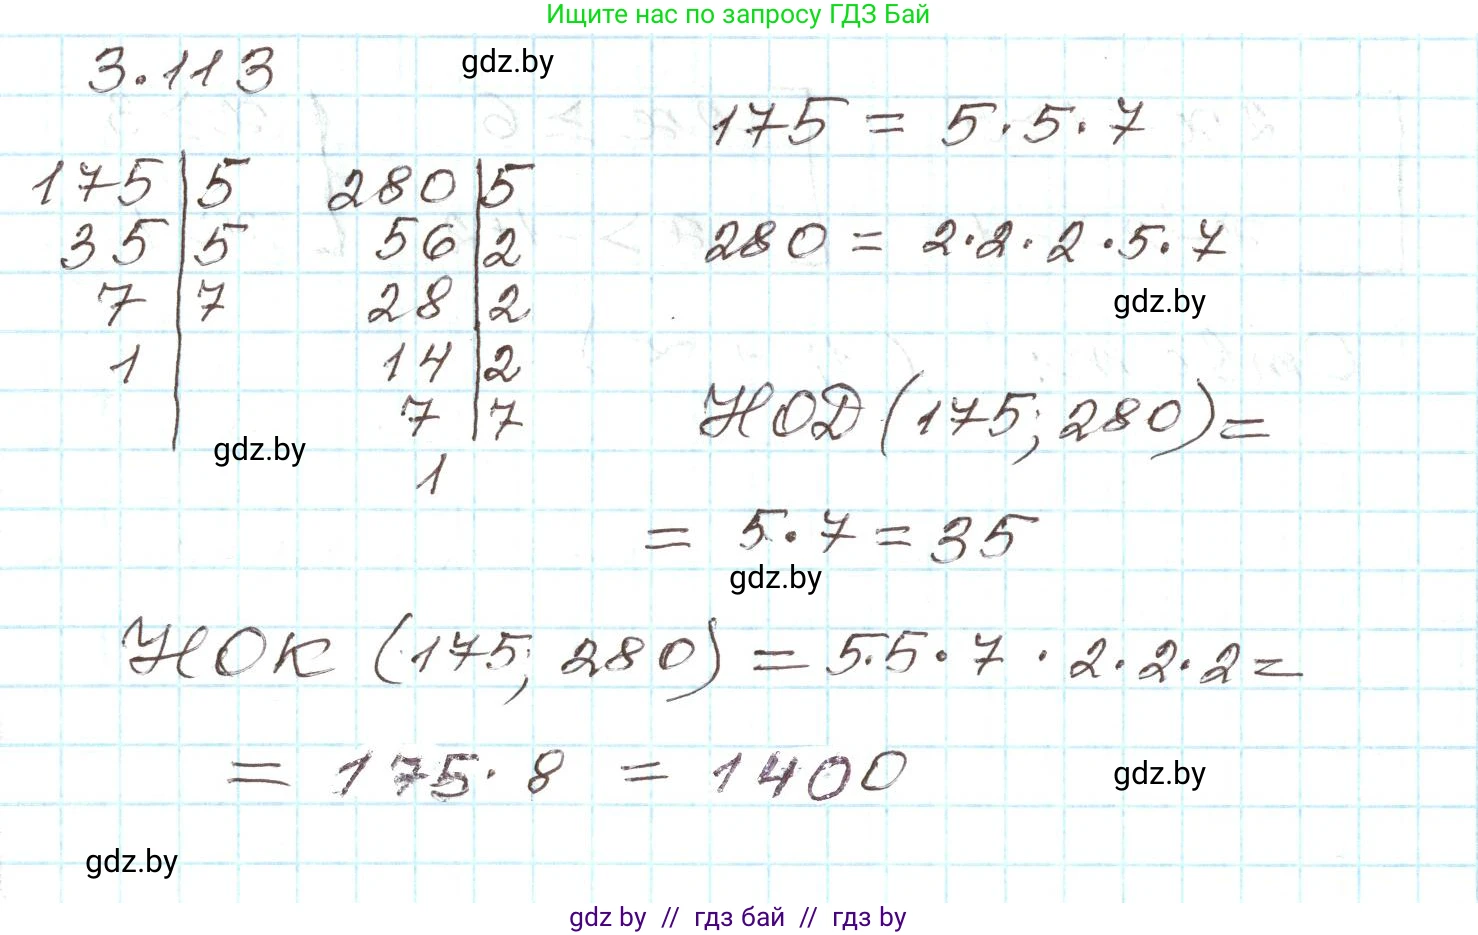 Ищите нас по запросу ГДЗ Бай
3.113
gdz.by
175 = 5·5·7
175 | 5
35 | 5
7 | 7
1
280 | 5
56 | 2
28 | 2
14 | 2
7 | 7
1
280 = 2·2·2·5·7
gdz.by
НОД (175; 280) =
gdz.by
= 5·7 = 35
gdz.by
НОК (175; 280) = 5·5·7·2·2·2 =
= 175·8 = 1400
gdz.by
gdz.by
gdz by // гдз бай // гдз by